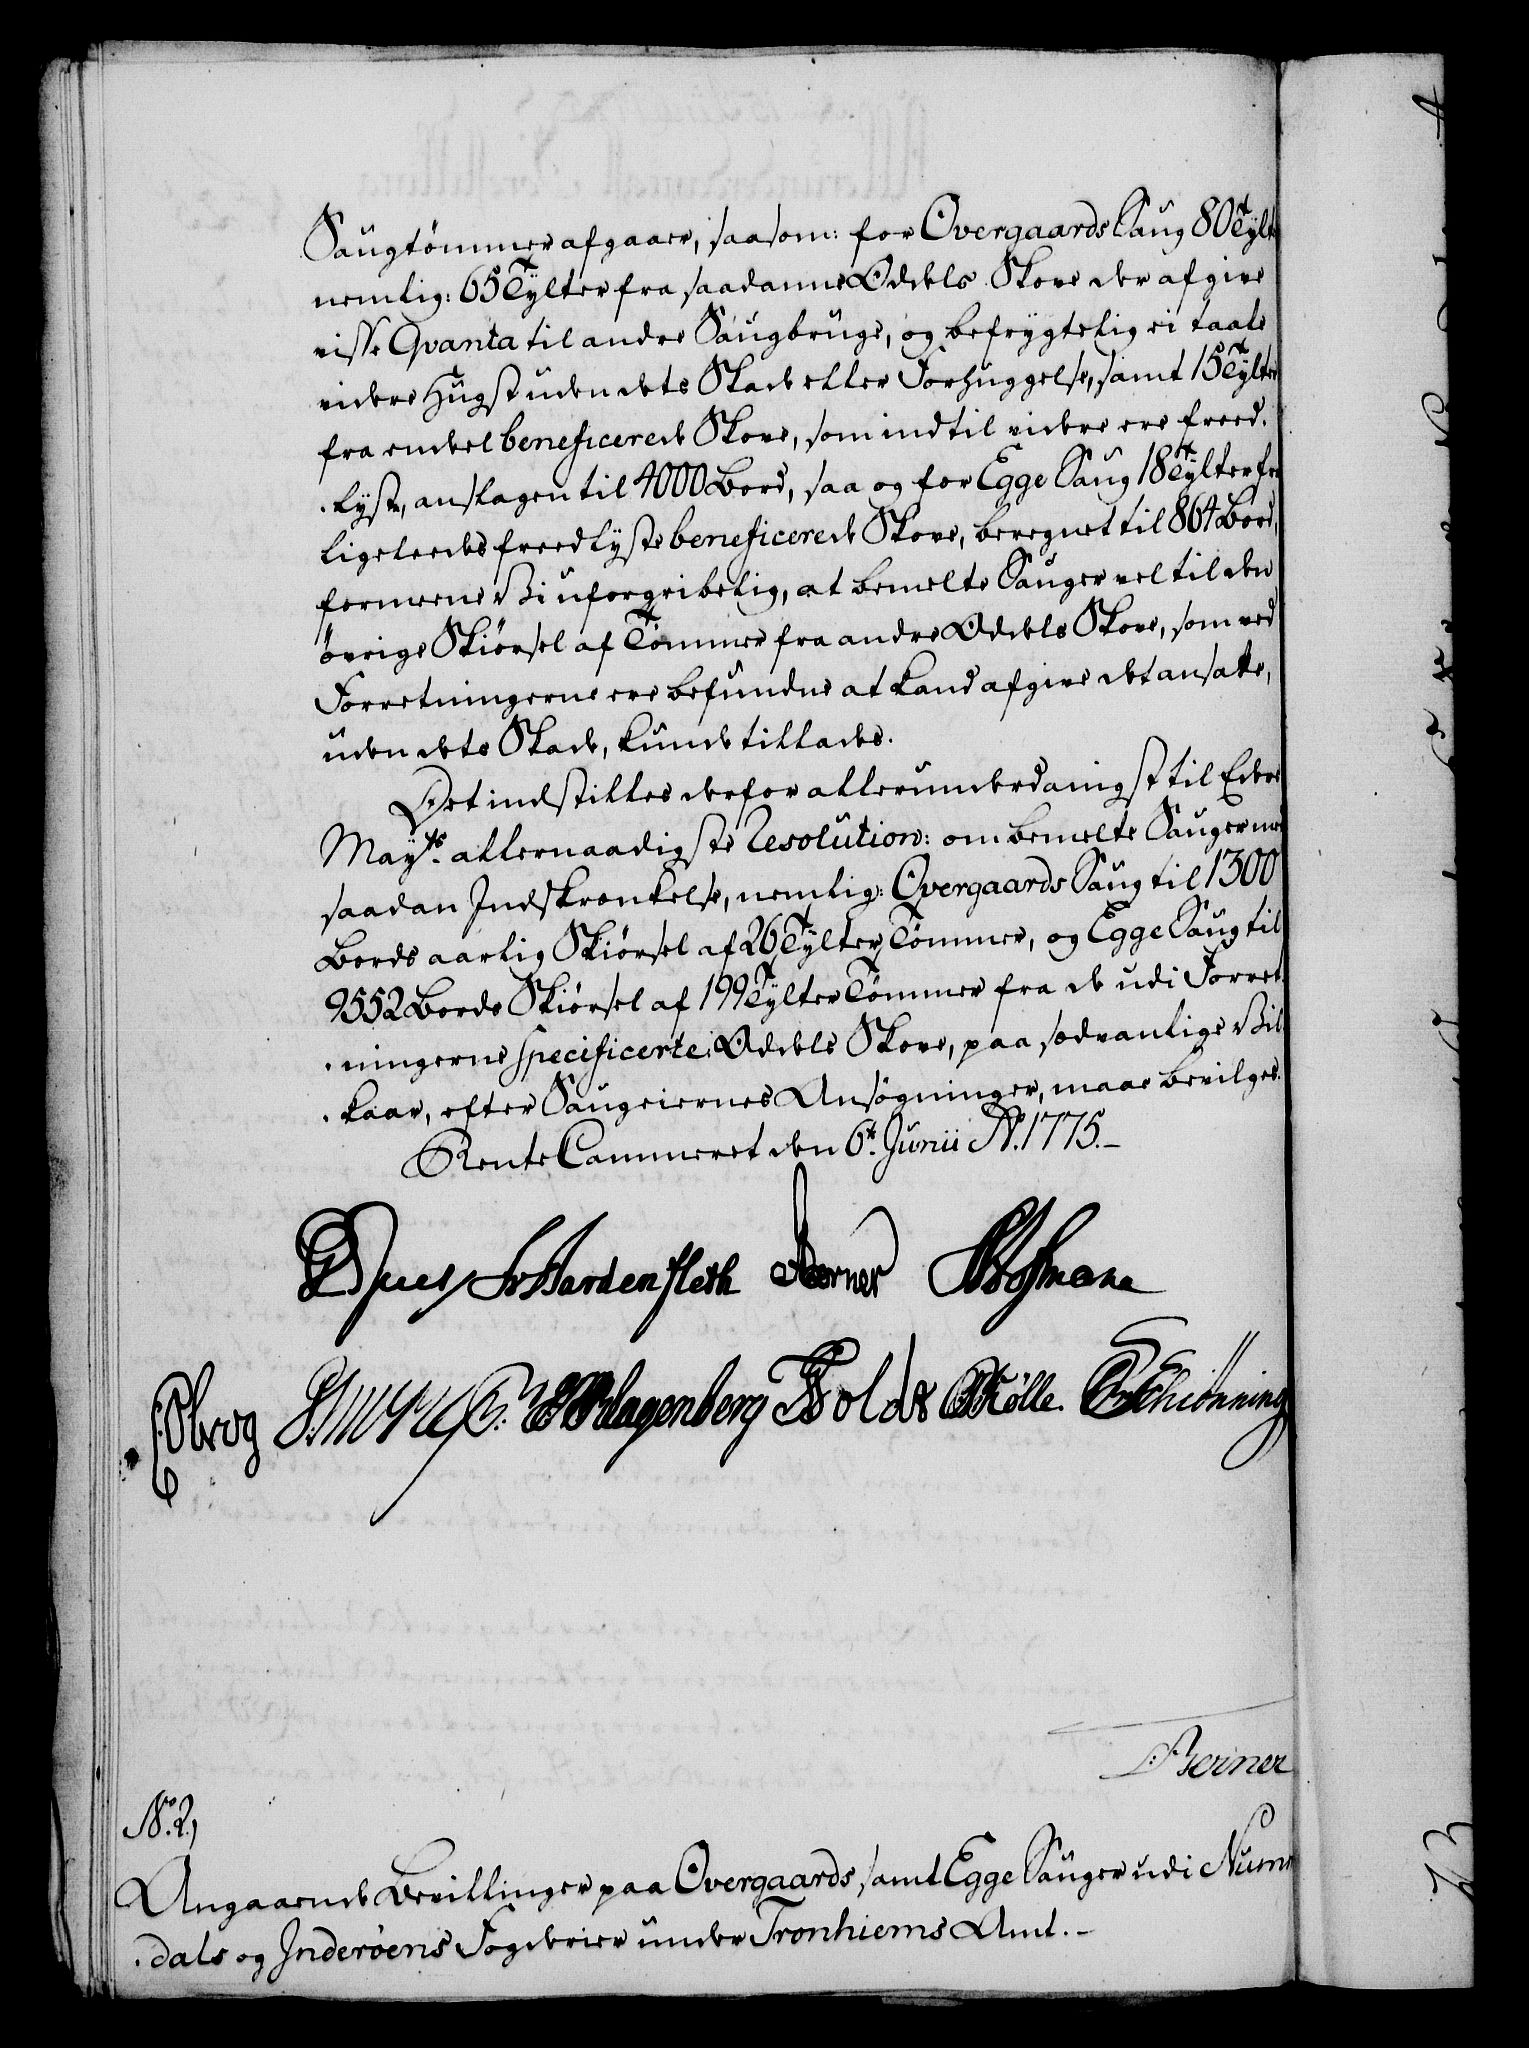 Saugtømmer afgaaer, saasom: for Overgaards Saug 80 Tylt
nemlig: 65 Tylter fra saadanne Oddels Skove der afgive
visse Qvanta til andre Saugbruge, og befrygtelig ei taale
videre Hugst uden dets Skade eller Forhuggelse, samt 15 Tylter
fra endeel beneficerede Skove, som indtil videre ere freed-
-lyste, anslagen til 4000 Bord, saa og for Egge Saug 18 Tylter fra
ligeleedes freedlyste beneficerede Skove, beregnet til 864 Bord,
formeene Vi uforgribelig, at bemelte Sauger vel til den
øvrige Skiørsel af Tømmer fra andre Oddels Skove, som ved
Forretningerne ere befundne at kand afgive det ansatte,
uden dets Skade, kunde tillades.
Det indstilles derfor allerunderdanigst til Eders
Mayts allernaadigste Resolution: om bemelte Sauger med
saadan Indskrænkelse, nemlig: Overgaards Saug til 1300
Bords aarlig Skiørsel af 26 Tylter Tømmer, og Egge Saug til
9552 Bords Skiørsel af 199 Tylter Tømmer fra de udi Forret-
-ningerne specificerte Oddels Skove, paa sædvanlige Vil-
-kaar, efter Saugeiernes Ansøgninger, maae bevilges.
Rente Cammeret den 6te Junii Ao. 1775.-
Hardenfleth Berner Hofmann
Obrog Klagenberg Holdt Kølle. Schiönning
Berner
No. 2,
Angaaende Bevillinger paa Overgaards, samt Egge Sauger udi Num-
-dals og Inderøens Fogderier under Tronhiems Amt.-